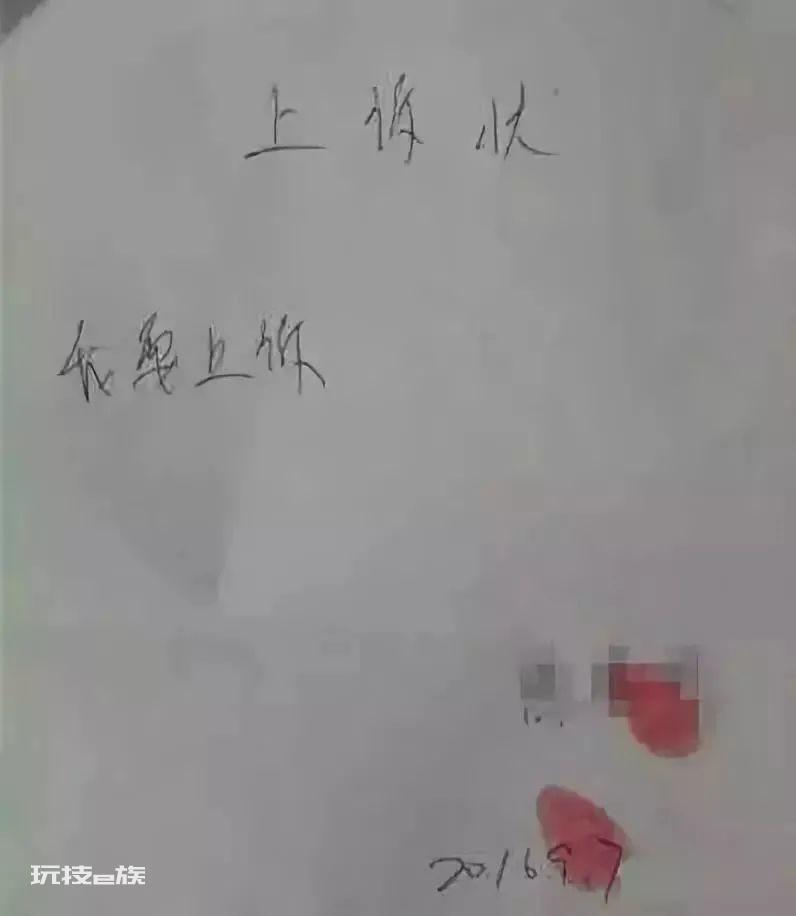 上诉状
我要上诉
2016.9.7
玩技e族